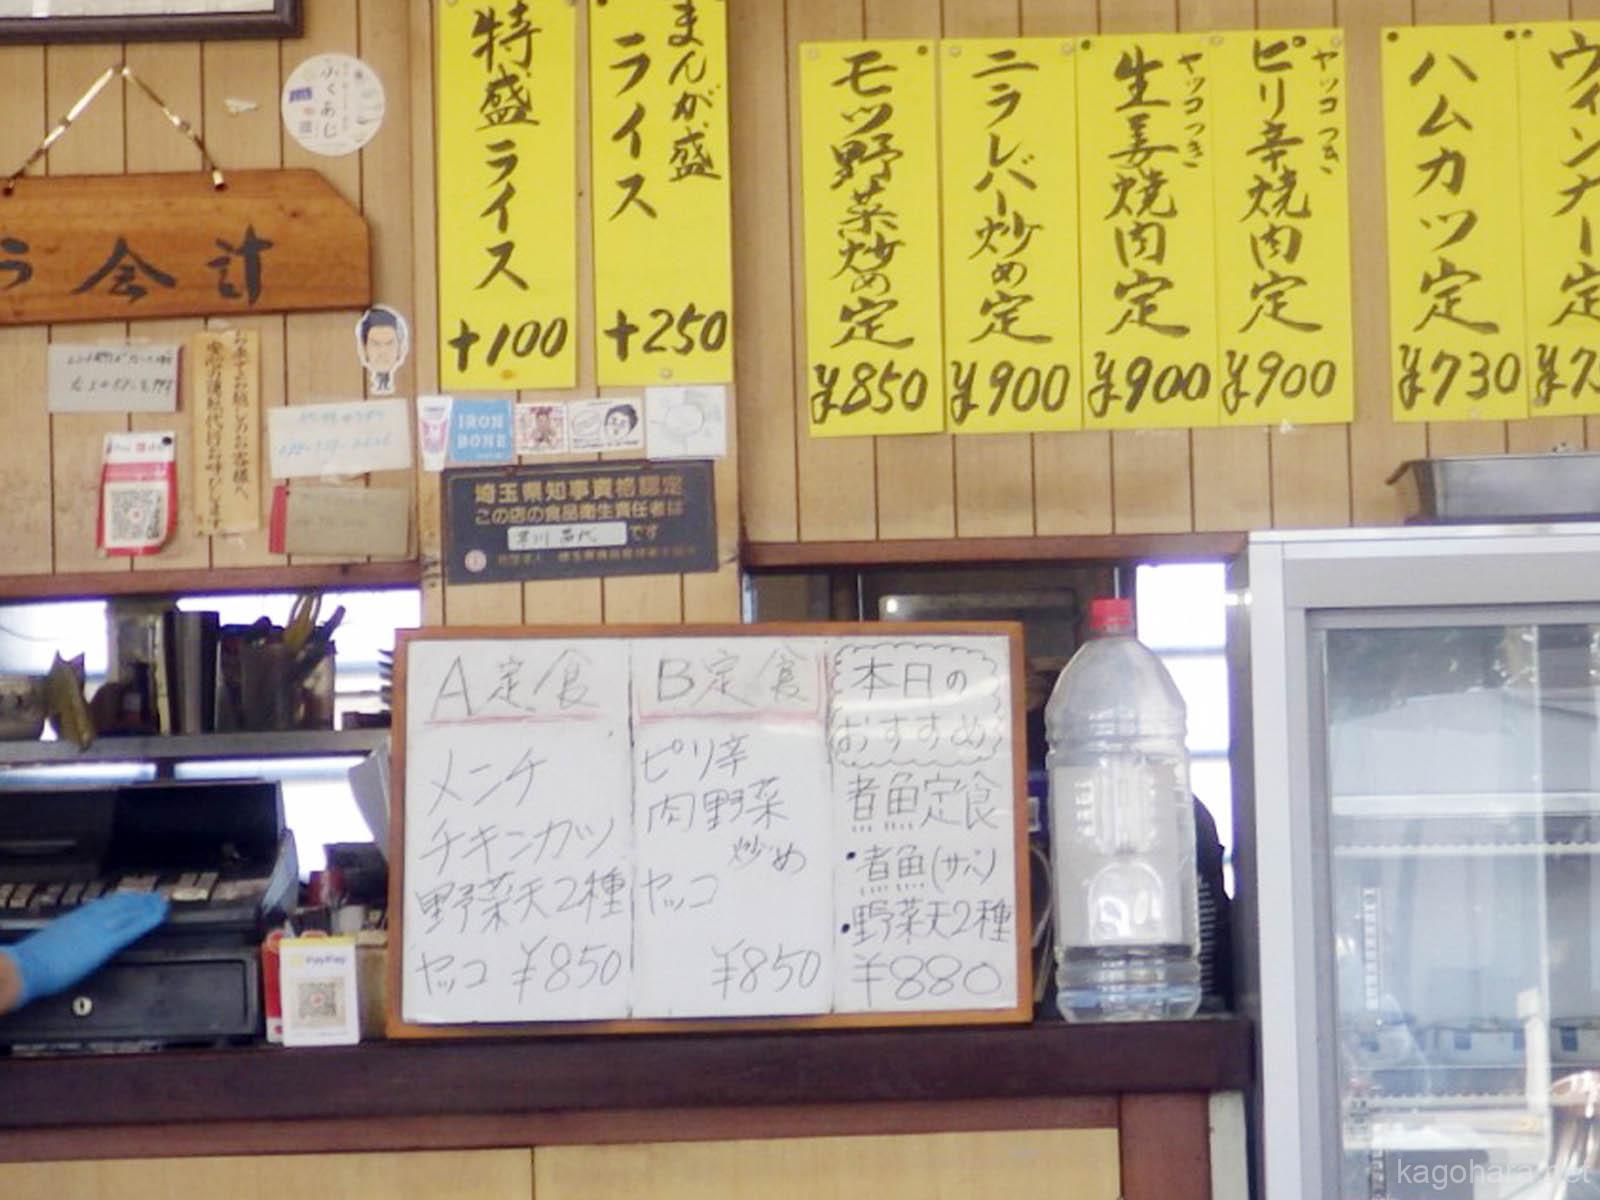 特盛ライス
+100
まんが盛
ライス
+250
モツ野菜炒め定
¥850
ニラレバー炒め定
¥900
ヤッコつき
生姜焼肉定
¥900
ヤッコつき
ピリ辛焼肉定
¥900
ハムカツ定
¥730
ウィンナー定
ふくあじ
会計
IRON
BONE
埼玉県知事資格認定
この店の食品衛生責任者は
です
A定食
メンチ
チキンカツ
野菜天2種
ヤッコ ¥850
B定食
ピリ辛
肉野菜
炒め
ヤッコ
¥850
本日の
おすすめ
煮魚定食
・煮魚(サバ)
・野菜天2種
¥880
PayPay
kagohara.net